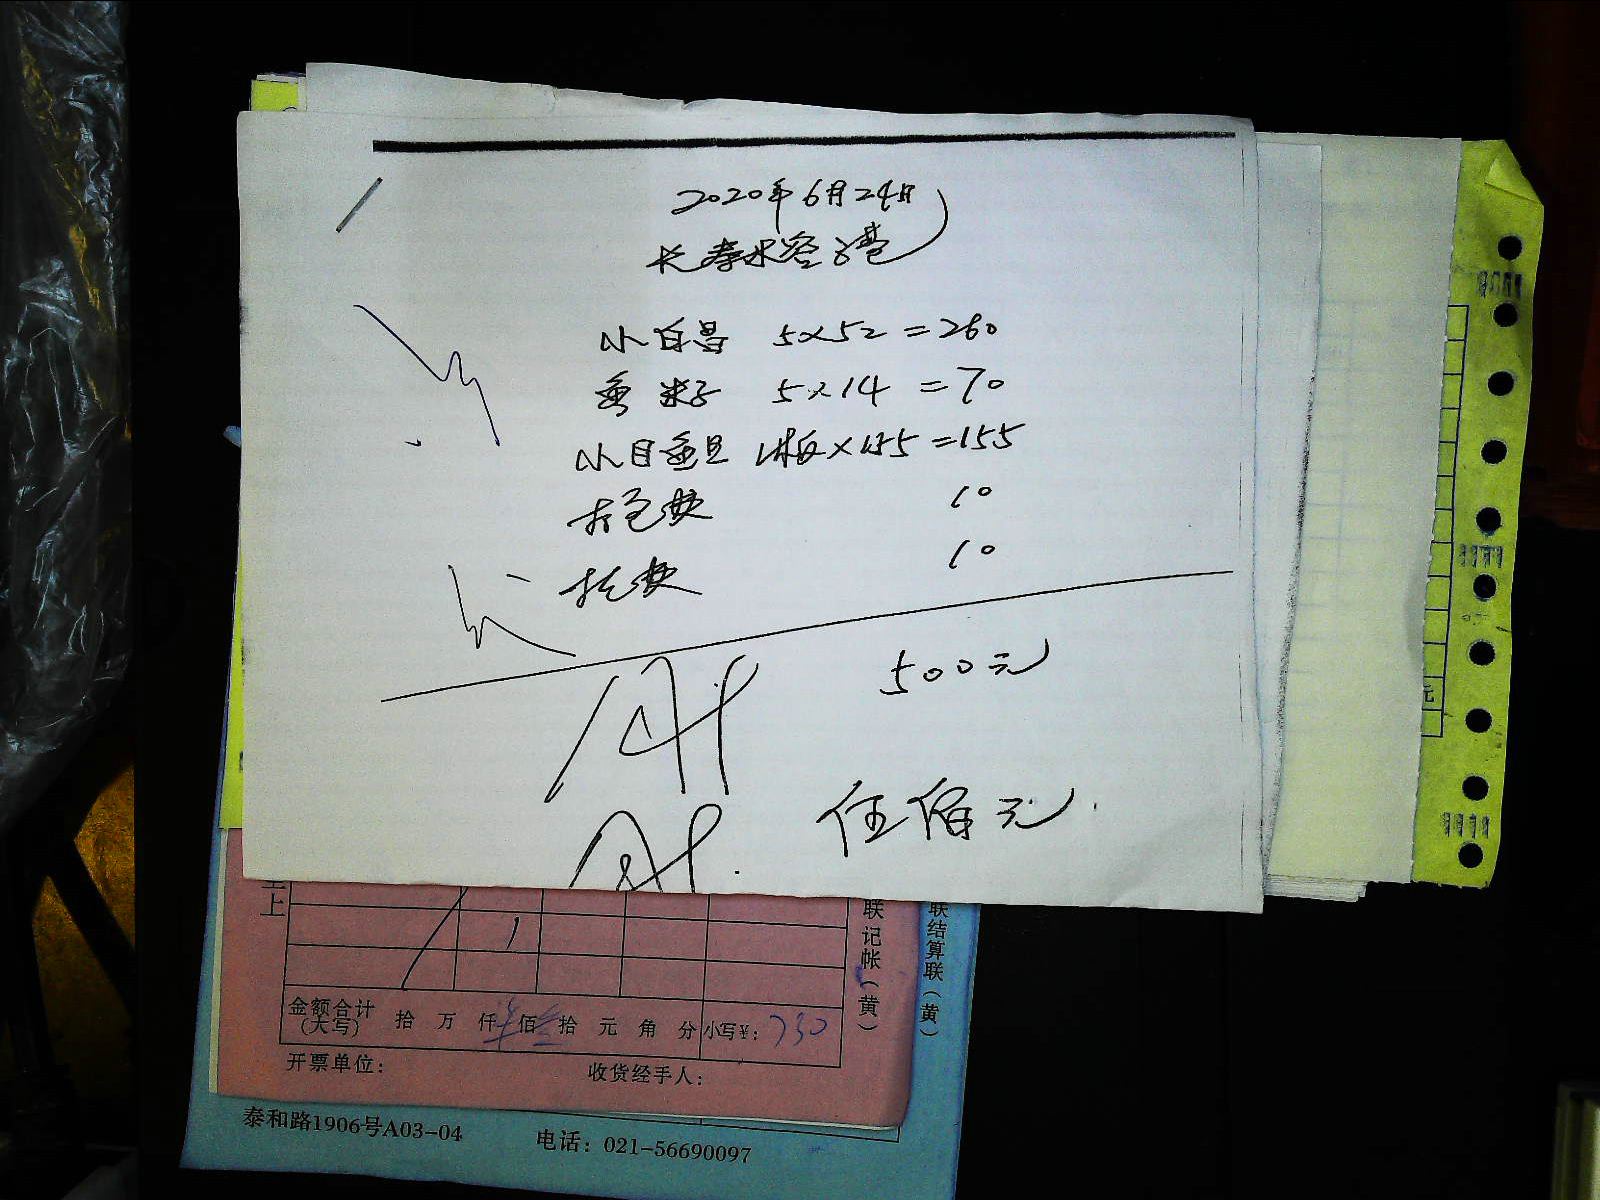 2020年6月24日
小白 5×52=260
5×14=70
小目鱼 1板×155=155
打包费 10
托费 10
500元
伍佰元
元
上
联记帐(黄)
联结算联(黄)
金额合计
(大写) 拾 万 仟 佰 拾 元 角 分 小写¥: 730
开票单位: 收货经手人:
泰和路1906号A03-04 电话: 021-56690097